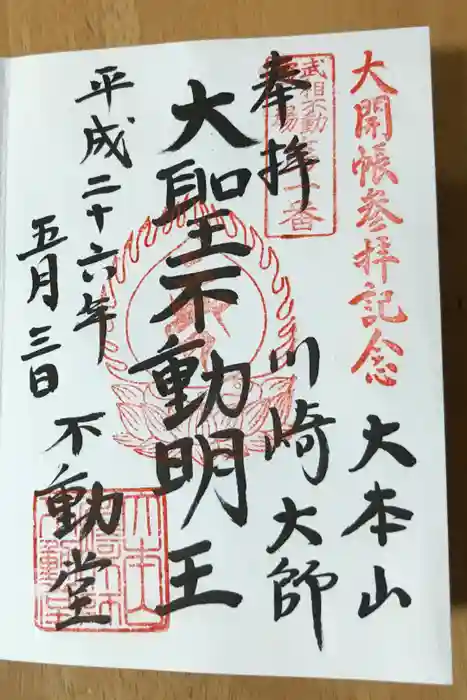 大開帳参拝記念
大本山
奉拝
武相不動
番
川崎大師
大聖不動明王
不動堂
平成二十六年
五月三日